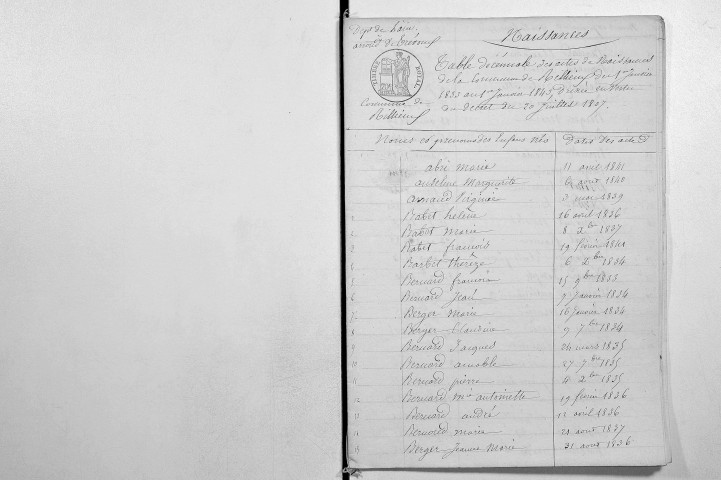 Naissances
Dépt de l'ain,
arrondt de Trévoux
TIMBRE ROYAL
Commune de
Rillieux
Table décennale des actes de Naissances
de la Commune de Rillieux du 1er Janvier
1833 au 1er Janvier 1843, dressée en Vertu
du décret du 20 Juillet 1807.
Noms et prenoms des Enfans Nés Dates des actes
abri marie 11 avril 1841
anselme Marguerite 6 aout 1840
arnaud Virginie 3 mai 1839
1 Babet helène 16 avril 1836
2 Babet Marie 8 2bre 1837
3 Babet francois 19 fevrier 1841
4 Barbet thérèze 6 2bre 1834
5 Bernard francois 15 9bre 1833
6 Bernard Jean 9 Janvier 1834
7 Berger Marie 16 Janvier 1834
8 Berger Claudine 9 7bre 1834
9 Bernard Jacques 24 mars 1835
10 Bernard aimable 27 7bre 1835
11 Bernard pierre 4 2bre 1835
12 Bernard Mie antoinette 19 fevrier 1836
13 Bernard andré 12 avril 1836
14 Bernard marie 21 aout 1837
15 Berger Jeanne Marie 31 aout 1836